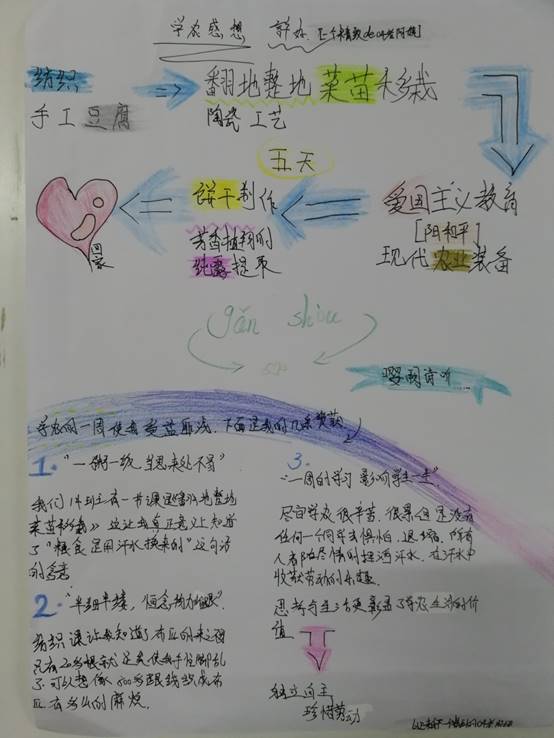 学农感想
纺织
翻地整地 菜苗移栽
手工豆腐
陶瓷工艺
五天
饼干制作
爱国主义教育
[阳和平]
芳香植物的
纯露提取
现代农业装备
回家
gǎn shòu
学农的一周使我受益匪浅,下面是我的几条收获
1. "一粥一饭,当思来处不易"
我们班有一节课是《翻地整地
菜苗移栽》这让我真正意义上知道
了"粮食是用汗水换来的"这句话
的含义
2. "半丝半缕,恒念物力维艰".
纺织课让我知道了布匹的来之不易
只有20多根线就足矣使我手忙脚乱
了.可以想像800多跟线织成布
匹有多么的麻烦.
3.
"一周的学习 影响学生一生".
尽管学农很辛苦,很累但是没有
任何一个同学去惧怕、退缩,所有
人都在尽情的挥洒汗水,在汗水中
收获劳动的乐趣.
思考与生活更彰显了学农生活的价
值
独立自主
珍惜劳动